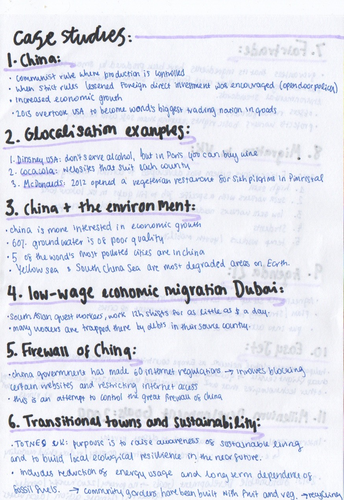 Case studies:
1. China:
• communist rule where production is controlled
• when strict rules lessened foreign direct investment was encouraged (open door policies)
• Increased economic growth
• 2013 overtook USA to become worlds biggest trading nation in goods
2. Glocalisation examples:
1. Disney USA: don't serve alcohol, but in Paris you can buy wine
2. Cocacola: websites that suit each country
3. McDonalds: 2012 opened a vegetarian restaurant for Sikh pilgrims in
3. China + the environment:
• china is more interested in economic growth
• 60% groundwater is of poor quality
• 5 of the worlds most polluted cities are in china
• Yellow sea & South China Sea are most degraded areas on Earth.
4. low-wage economic migration Dubai:
• South Asian guest workers, work 12h shifts for as little as $ a day.
• many women are trapped there by debts in their source country.
5. Firewall of China:
• china government has made 60 internet regulations → involves blocking
certain websites and restricting internet access
• this is an attempt to control the great firewall of China
6. Transitional towns and sustainability:
• TOTNES UK: purpose is to raise awareness of sustainable living
and to build local ecological resilience in the near future.
• Includes reduction of energy usage and long term dependence of
fossil fuels. → community gardens have been built with fruit and veg. → recycling